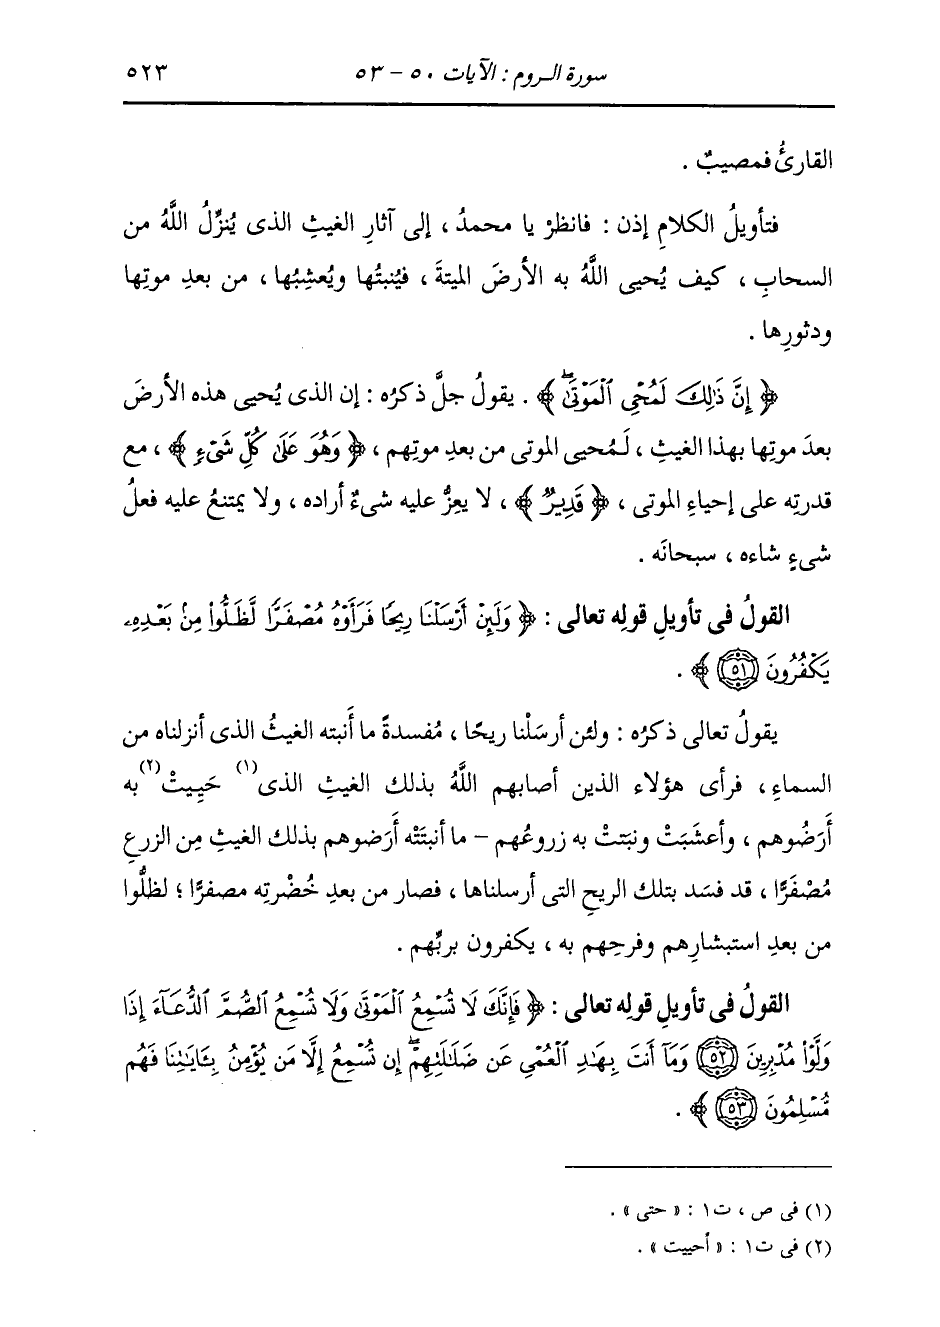 سورة الروم : الآيات ٥٠ - ٥٣ ٥٢٣
القارئُ فمصيبٌ .
فتأويلُ الكلامِ إذن : فانظرْ يا محمدُ ، إلى آثارِ الغيثِ الذى يُنزِّلُ اللَّهُ من
السحابِ ، كيف يُحيى اللَّهُ به الأرضَ الميتةَ ، فيُنبتُها ويُعشِبُها ، من بعدِ موتِها
ودثورِها .
﴿ إِنَّ ذَٰلِكَ لَمُحْىِ ٱلْمَوْتَىٰۖ ﴾ . يقولُ جلَّ ذكرُه : إن الذى يُحيى هذه الأرضَ
بعدَ موتِها بهذا الغيثِ ، لَمُحيى الموتى من بعدِ موتِهم ، ﴿ وَهُوَ عَلَىٰ كُلِّ شَىْءٍ ﴾ ، مع
قدرتِه على إحياءِ الموتى ، ﴿ قَدِيرٌ ﴾ ، لا يعِزُّ عليه شىءٌ أراده ، ولا يمتنعُ عليه فعلُ
شىءٍ شاءه ، سبحانَه .
القولُ فى تأويلِ قولِه تعالى : ﴿ وَلَئِنْ أَرْسَلْنَا رِيحًا فَرَأَوْهُ مُصْفَرًّا لَّظَلُّوا۟ مِنۢ بَعْدِهِۦ
يَكْفُرُونَ ٥١ ﴾ .
يقولُ تعالى ذكرُه : ولئن أرسَلْنا ريحًا ، مُفسدةً ما أَنبته الغيثُ الذى أنزلناه من
السماءِ ، فرأى هؤلاء الذين أصابهم اللَّهُ بذلك الغيثِ الذى(١) حَيِيتْ(٢) به
أَرَضُوهم ، وأعشَبَتْ ونبَتتْ به زروعُهم - ما أنبتَتْه أَرَضوهم بذلك الغيثِ مِن الزرعِ
مُصْفَرًّا ، قد فسَد بتلك الريحِ التى أرسلناها ، فصار من بعدِ خُضْرتِه مصفرًا ؛ لظلُّوا
من بعدِ استبشارِهم وفرحِهم به ، يكفرون بربِّهم .
القولُ فى تأويلِ قولِه تعالى : ﴿ فَإِنَّكَ لَا تُسْمِعُ ٱلْمَوْتَىٰ وَلَا تُسْمِعُ ٱلصُّمَّ ٱلدُّعَآءَ إِذَا
وَلَّوْا۟ مُدْبِرِينَ ٥٢ وَمَآ أَنتَ بِهَٰدِ ٱلْعُمْىِ عَن ضَلَٰلَتِهِمْۖ إِن تُسْمِعُ إِلَّا مَن يُؤْمِنُ بِـَٔايَٰتِنَا فَهُم
مُّسْلِمُونَ ٥٣ ﴾ .
(١) فى ص ، ت١ : « حتى » .
(٢) فى ت١ : « أحييت » .